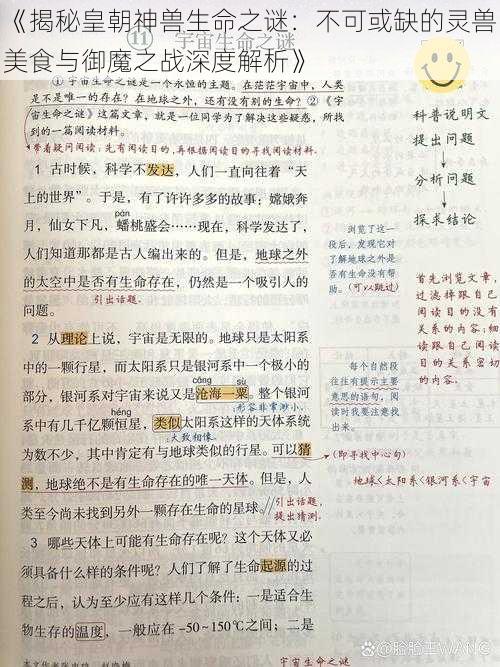 《揭秘皇朝神兽生命之谜：不可或缺的灵兽
美食与御魔之战深度解析》
11 宇宙生命之谜
①宇宙生命之谜是一个永恒的主题。在茫茫宇宙中，人类
是不是唯一的存在？在地球之外，还有没有别的生命？②《宇
宙生命之谜》这篇文章，就是一位同学为了解决这些疑惑，所找
到的一篇阅读材料。
带着疑问阅读：先有阅读目的，再根据阅读目的寻找阅读材料。
1 古时候，科学不发达，人们一直向往着“天
上的世界”。于是，有了许许多多的故事：嫦娥奔
pán
月，仙女下凡，蟠桃盛会……现在，科学发达了，
人们知道那都是古人编出来的。但是，地球之外
的太空中是否有生命存在，仍然是一个吸引人的
引出话题.
问题。
2 从理论上说，宇宙是无限的。地球只是太阳系
中的一颗行星，而太阳系只是银河系中一个极小的
cāng sù
部分，银河系对宇宙来说又是沧海一粟。整个银河
héng 形容非常渺小.
系中有几千亿颗恒星，类似太阳系这样的天体系统
大致相像.
为数不少，其中肯定有与地球类似的行星。可以猜
测，地球绝不是有生命存在的唯一天体。但是，人
类至今尚未找到另外一颗存在生命的星球。
引出话题，
提出猜测.
3 哪些天体上可能有生命存在呢？这个天体又必
须具备什么样的条件呢？人们了解了生命起源的过
程之后，认为至少应有这样几个条件：一是适合生
物生存的温度，一般应在-50~150℃之间；二是
科普说明文
提出问题
分析问题
探求结论
浏览了这一
段后，发现它对
了解地球之外是
否有生命没有帮
助。（可以跳过）
首先浏览文章，
过滤掉跟自己
阅读目的没有
关系的内容；细
读跟自己阅读
目的关系密切
的内容.
每个自然段
往往有提示主要
意思的语句，阅
读时我要注意找
出来。
（即寻找中心句）
地球<太阳系<银河系<宇宙
宇宙生命之谜